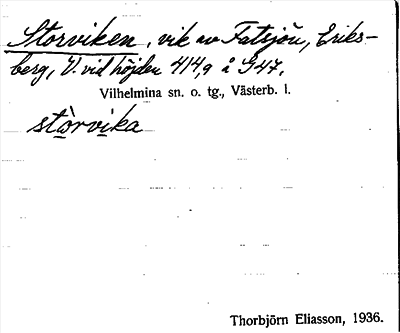 Storviken, vik av Fatsjön, Eriks-
berg, V. vid höjden 414,9 å G47.
Vilhelmina sn. o. tg., Västerb. l.
stòrvika
Thorbjörn Eliasson, 1936.